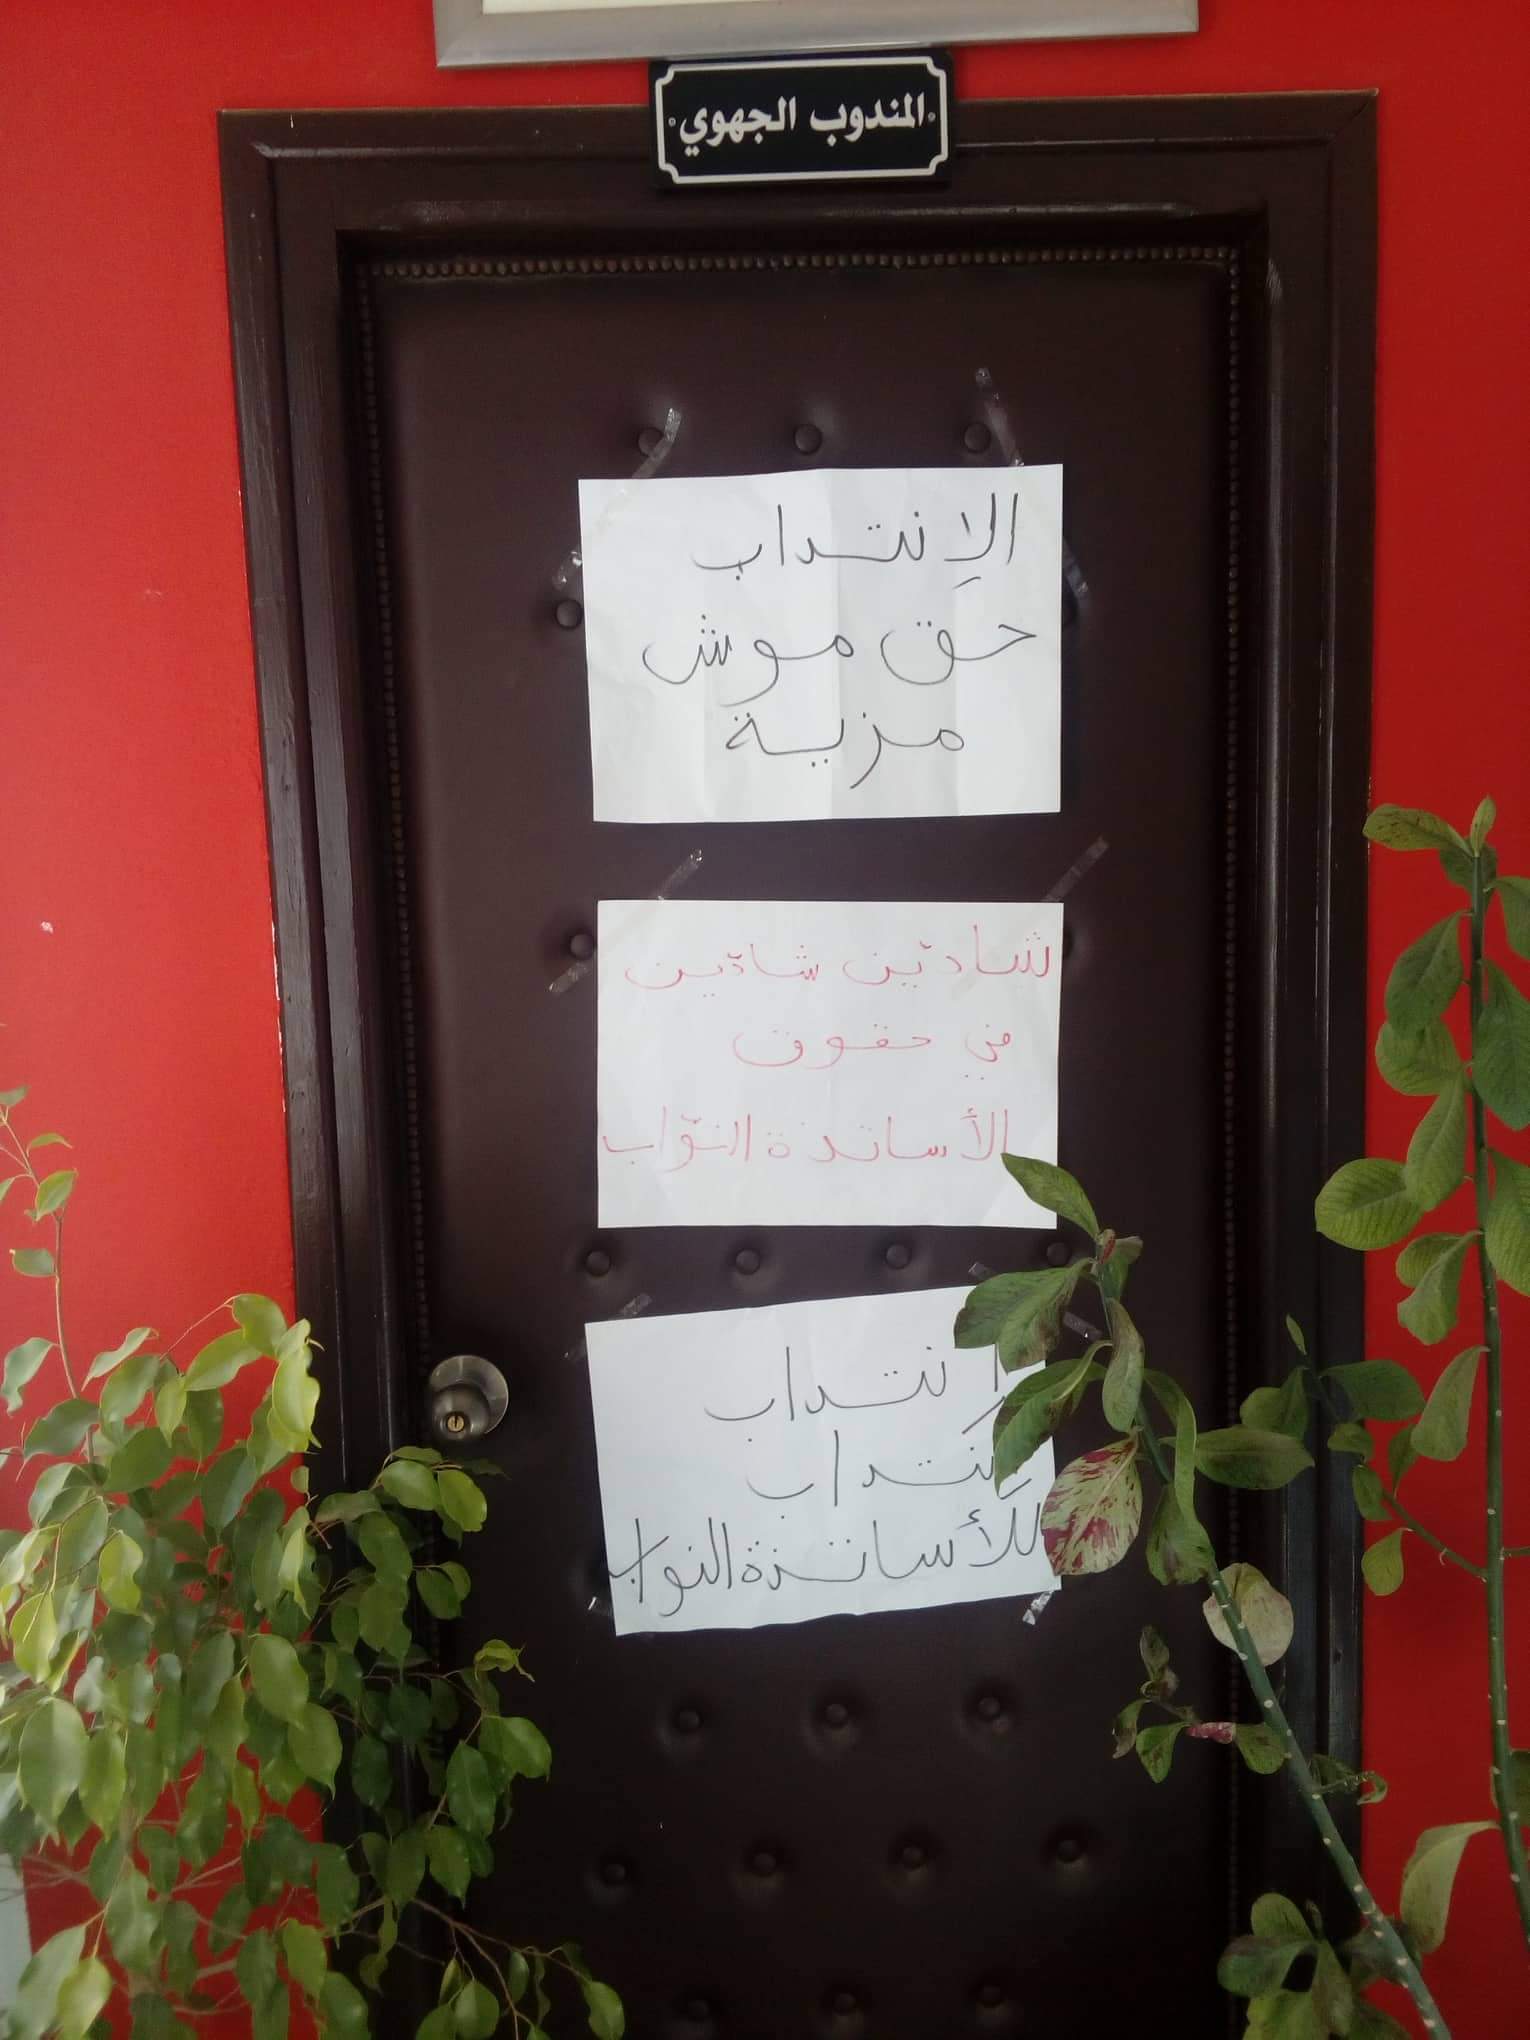 المندوب الجهوي
الإنتداب
حق موش
مزية
شادّين شادّين
في حقوق
الأساتذة النوّاب
انتداب
إنتداب
للأساتذة النواب